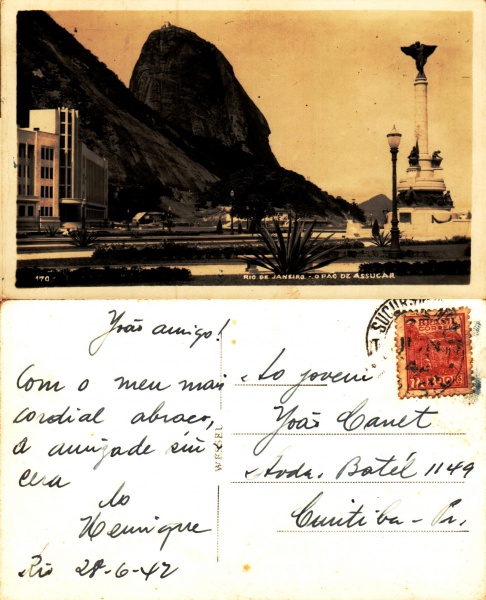 170
RIO DE JANEIRO - O PÃO DE ASSUCAR
João amigo!
Com o meu mais
cordial abraço,
a amizade sin
cera
do
Henrique
Rio 28-6-42
WESSEL
Ao jovem
João Canet
Avda. Batél 1149
Curitiba - Pr.
SUCURSA
BRASIL
CORREIO